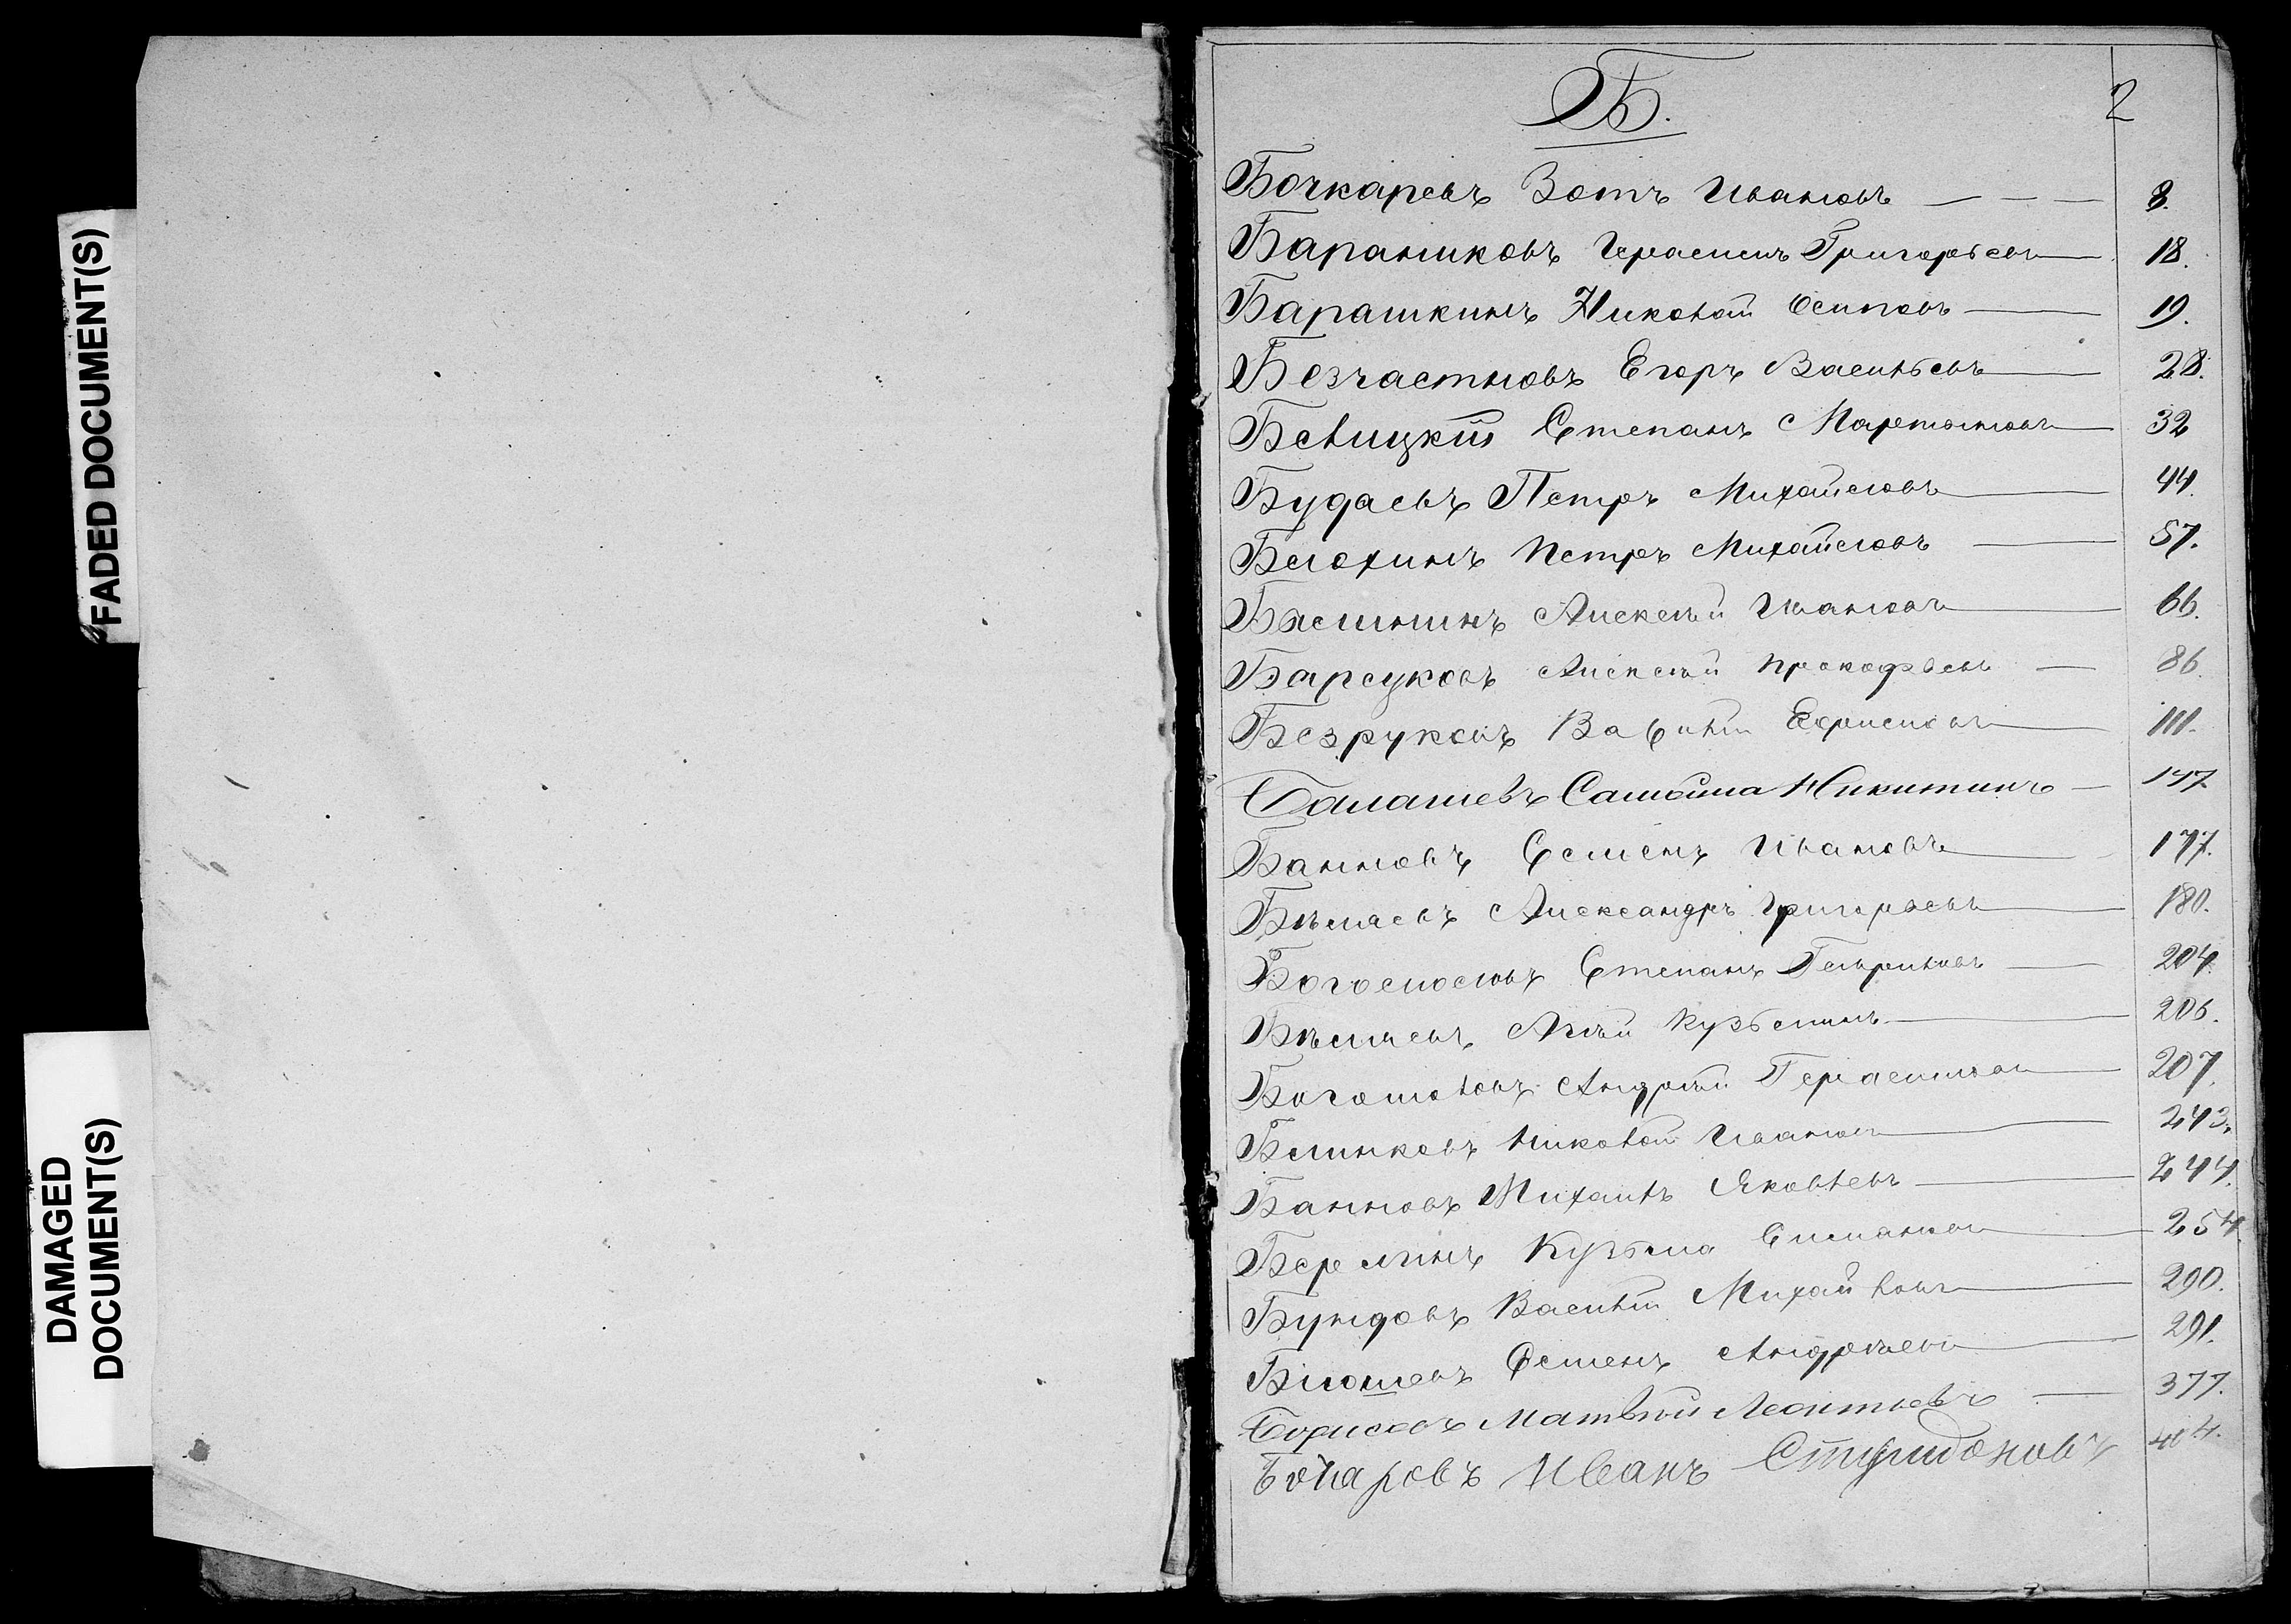 FADED DOCUMENT(S)
DAMAGED
DOCUMENT(S)
Б.
2
Бочкаревъ Зотъ Ивановъ 8.
Бараниковъ Герасимъ Григорьевъ 18.
Барашкинъ Николай Осиповъ 19.
Безчастновъ Егоръ Васильевъ 28.
Белицкій Степанъ Мартыновъ 32
Будаевъ Петръ Михайловъ 44.
Блохинъ Петръ Михайловъ 57.
Алексѣй Ивановъ 66.
Барсуковъ Алексѣй Прокофьевъ 86.
Безруковъ Ефимовъ 111.
Балашевъ Самойла Никитинъ 147
Банновъ Семенъ Ивановъ 177.
Бѣляевъ Александръ Григорьевъ 180.
Богословъ Степанъ Гавриловъ 204.
Бѣляевъ Кузьминъ 206.
Богомоловъ Андрей Герасимовъ 207.
Блинковъ Николай Ивановъ 243.
Банновъ Михаилъ Яковлевъ 244.
Кузьма 254.
Бундовъ Василій Михайловъ 290.
Семенъ Андреевъ 291.
Борисовъ Матвѣй Леонтьевъ 377.
Бочаровъ Иванъ Спиридоновъ 404.